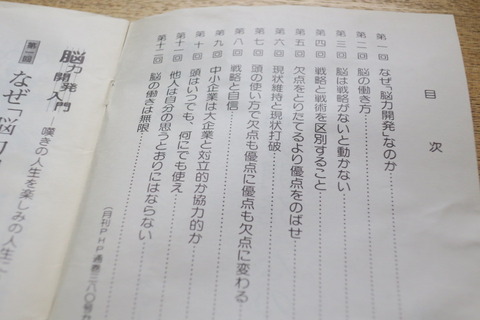 目次
第一回 なぜ「脳力開発」なのか
第二回 脳の働き方
第三回 脳は戦略がないと動かない
第四回 戦略と戦術を区別すること
第五回 欠点をとりたてるより優点をのばせ
第六回 現状維持と現状打破
第七回 頭の使い方で欠点も優点に優点も欠点に変わる
第八回 戦略と自信
第九回 中小企業は大企業と対立的か協力的か
第十回 頭はいつでも、何にでも使え
第十一回 他人は自分の思うとおりにはならない
第十二回 脳の働きは無限
(月刊PHP通巻三八〇号
脳力開発入門
―嘆きの人生を楽しみの人生
第一回
なぜ「脳